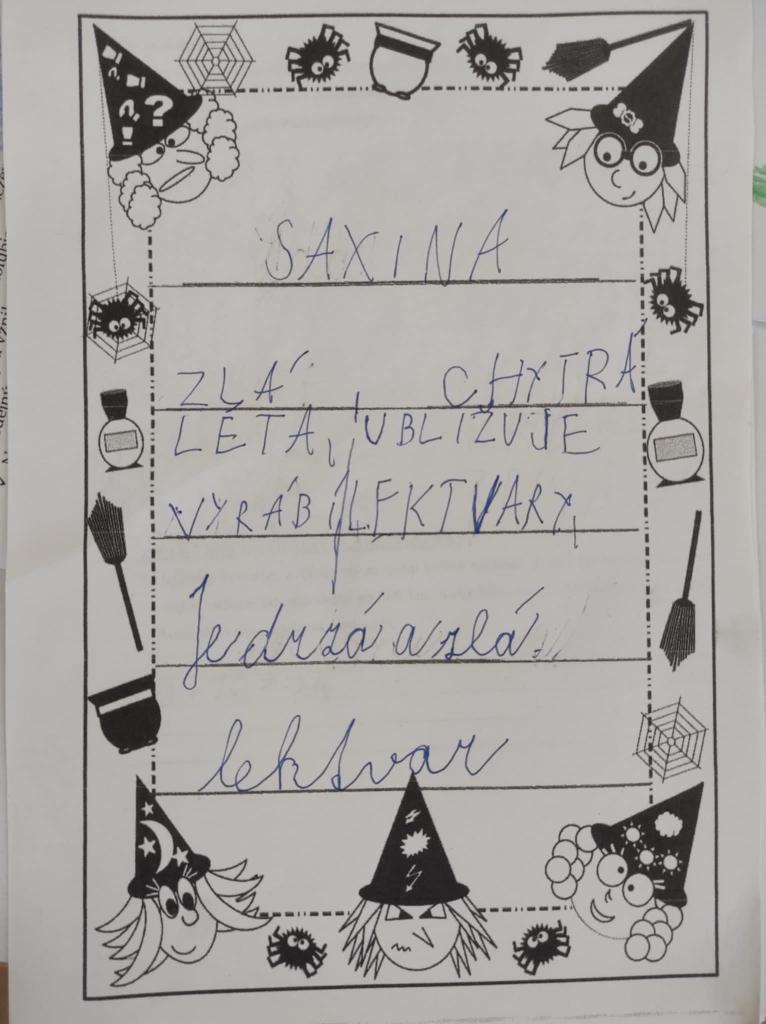 SAXINA
ZLÁ CHYTRÁ
LÉTÁ, UBLIŽUJE
VYRÁBÍ LEKTVARY,
Je drzá a zlá.
lektvar